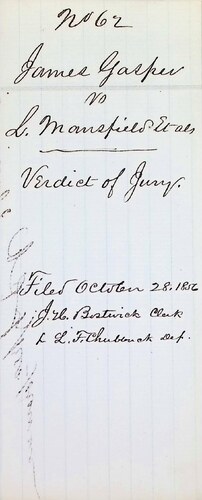 No 62
James Gasper
vs
L. Mansfield Et als
Verdict of Jury.
Filed October 28. 1856
J. H. Bostwick Clerk
L. F. Chubbuck Dep.